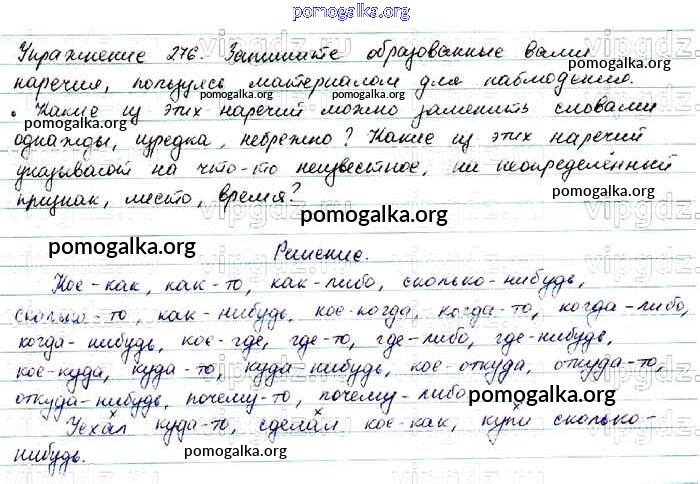 pomogalka.org
Упражнение 276. Запишите образованные вами
наречия, пользуясь материалом для наблюдения.
• Какие из этих наречий можно заменить словами
однажды, изредка, небрежно? Какие из этих наречий
указывают на что-то неизвестное, на неопределённый
признак, место, время?
pomogalka.org
Решение.
Кое-как, как-то, как-либо, сколько-нибудь,
сколько-то, как-нибудь, кое-когда, когда-то, когда-либо,
когда-нибудь, кое-где, где-то, где-либо, где-нибудь,
кое-куда, куда-то, куда нибудь, кое-откуда, откуда-то,
откуда-нибудь, почему-то, почему-либо
Уехал куда-то, сделал кое-как, купи сколько-
нибудь.
pomogalka.org